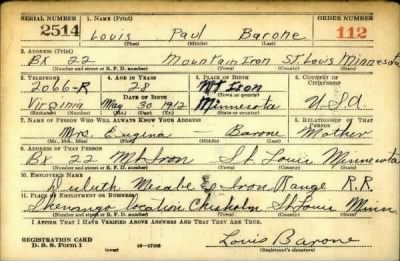 SERIAL NUMBER 1. NAME (Print) ORDER NUMBER
2514 Louis Paul Barone 112
(First) (Middle) (Last)
2. ADDRESS (Print)
Bx 22 Mountain Iron St Louis Minnesota
(Number and street or R. F. D. number) (Town) (County) (State)
3. TELEPHONE 4. AGE IN YEARS 5. PLACE OF BIRTH 6. COUNTRY OF CITIZENSHIP
2066-R 28 Mt Iron
DATE OF BIRTH (Town or county)
Virginia May 30 1912 Minnesota U.S.A
(Exchange) (Mo.) (Day) (Yr.) (State or country)
7. NAME OF PERSON WHO WILL ALWAYS KNOW YOUR ADDRESS 8. RELATIONSHIP OF THAT PERSON
Mrs. Eugina — Barone Mother
(Mr., Mrs., Miss) (First) (Middle) (Last)
9. ADDRESS OF THAT PERSON
Bx 22 Mt Iron St Louis Minnesota
(Number and street or R. F. D. number) (Town) (County) (State)
10. EMPLOYER'S NAME
Duluth Mesabe & Iron Range R.R.
11. PLACE OF EMPLOYMENT OR BUSINESS
Shenango location Chisholm St Louis Minn.
(Number and street or R. F. D. number) (Town) (County) (State)
I AFFIRM THAT I HAVE VERIFIED ABOVE ANSWERS AND THAT THEY ARE TRUE.
REGISTRATION CARD
D. S. S. Form 1 (over) Louis Barone
(Registrant's signature)